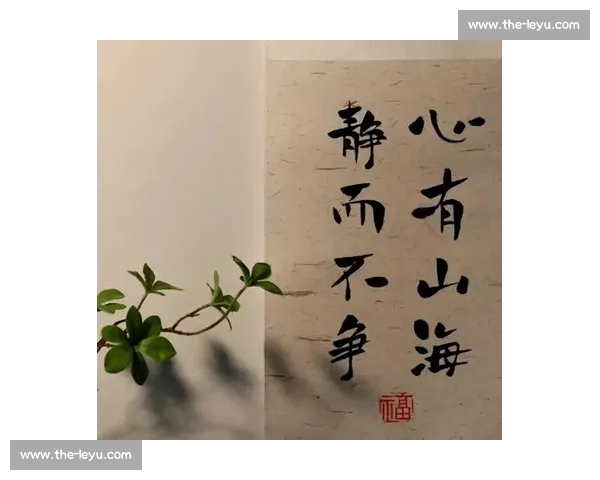 www.the-leyu.com
心有山海
静而不争
福
www.the-leyu.com